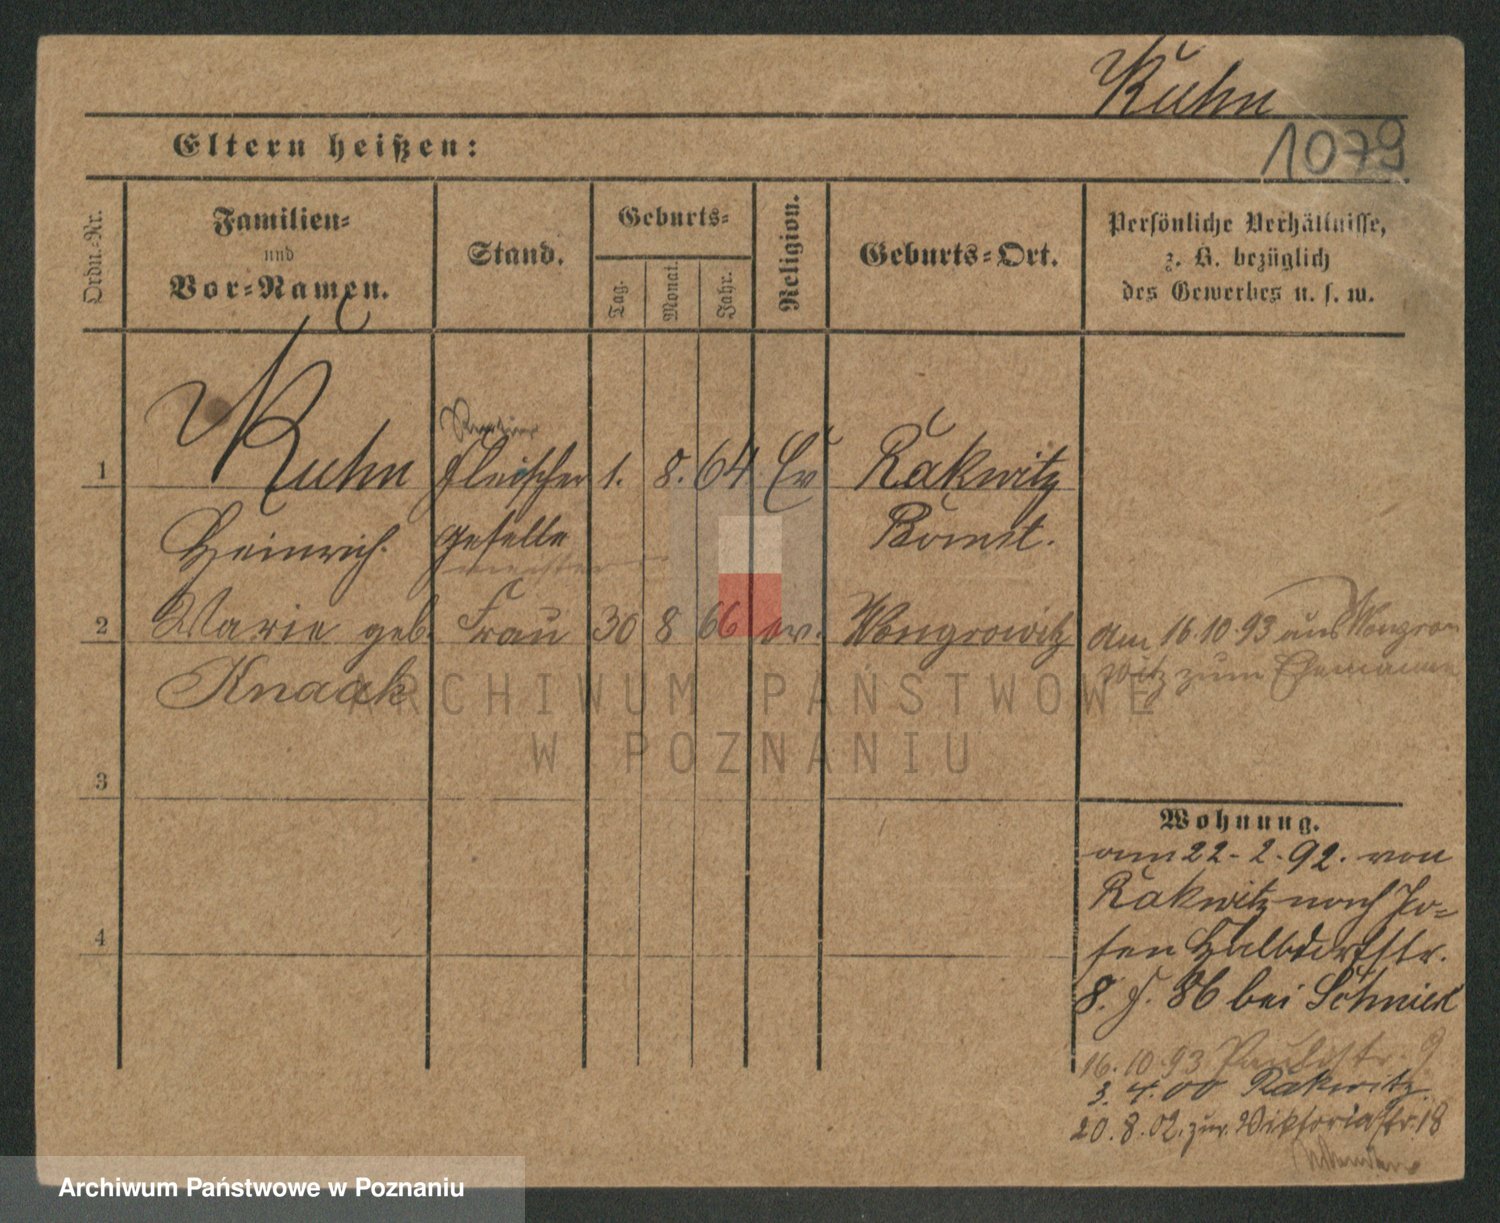 Kuhn
1079
Eltern heißen:
Ordn.-Nr.
Familien-
und
Vor-Namen.
Stand.
Geburts-
Tag.
Monat.
Jahr.
Religion.
Geburts-Ort.
Persönliche Verhältnisse,
z. B. bezüglich
des Gewerbes u. s. w.
1 Kuhn Fleischer 1. 8. 64 Ev Rakwitz
Heinrich. geselle Bomst.
meister
2 Marie geb. Frau 30 8 66 ev. Wongrowitz am 16.10.93 aus Wongro
Knaak witz zum Ehemanne
ARCHIWUM PAŃSTWOWE
W POZNANIU
3
Wohnung.
am 22-2.92. von
Rakwitz nach Po=
4 sen Halbdorfstr.
8. J. 86 bei
16.10.93 Paulistr. 9
3. 4. 00 Rakwitz.
20.8.02. zur. Viktoriastr. 18
Archiwum Państwowe w Poznaniu